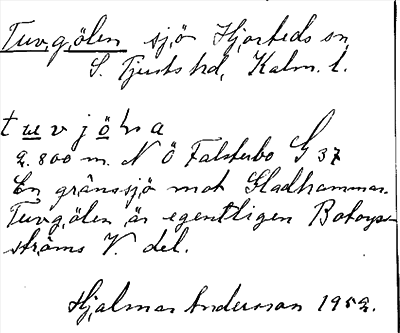 Tuvgölen sjö Hjorteds sn,
S. Tjusts hd, Kalm. l.
tuvjöln a
2.800 m. N Ö Falsterbo G 37
En gränssjö mot Gladhammar.
Tuvgölen är egentligen Botorps-
ströms V. del.
Hjalmar Andersson 1952.